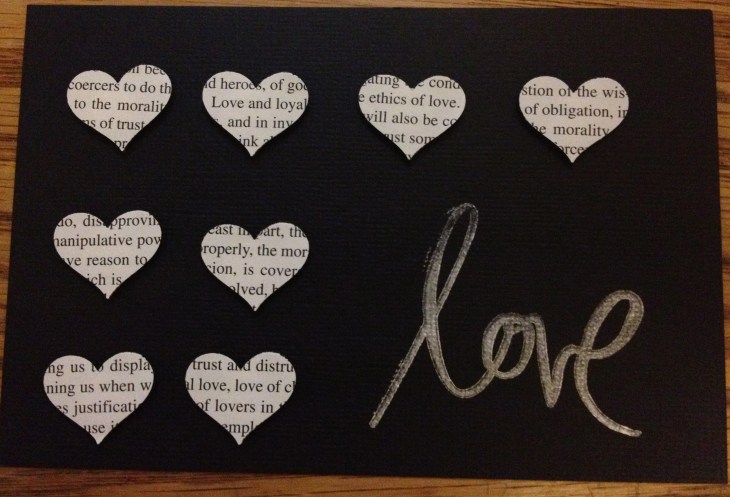 coercers to do th
to the moralit
ns of trust
d heroes, of goo
Love and loyal
s, and in inv
ink a
ating e cond
e ethics of love.
will also be co
ust som
stion of the wis
of obligation, in
he morality
force
do, disapprovin
nanipulative pow
ve reason to
ich is
east in part, the
properly, the mor
sion, is cover
olved, b
ng us to display
ning us when w
es justificati
use i
trust and distru
al love, love of cl
of lovers in t
empl
love